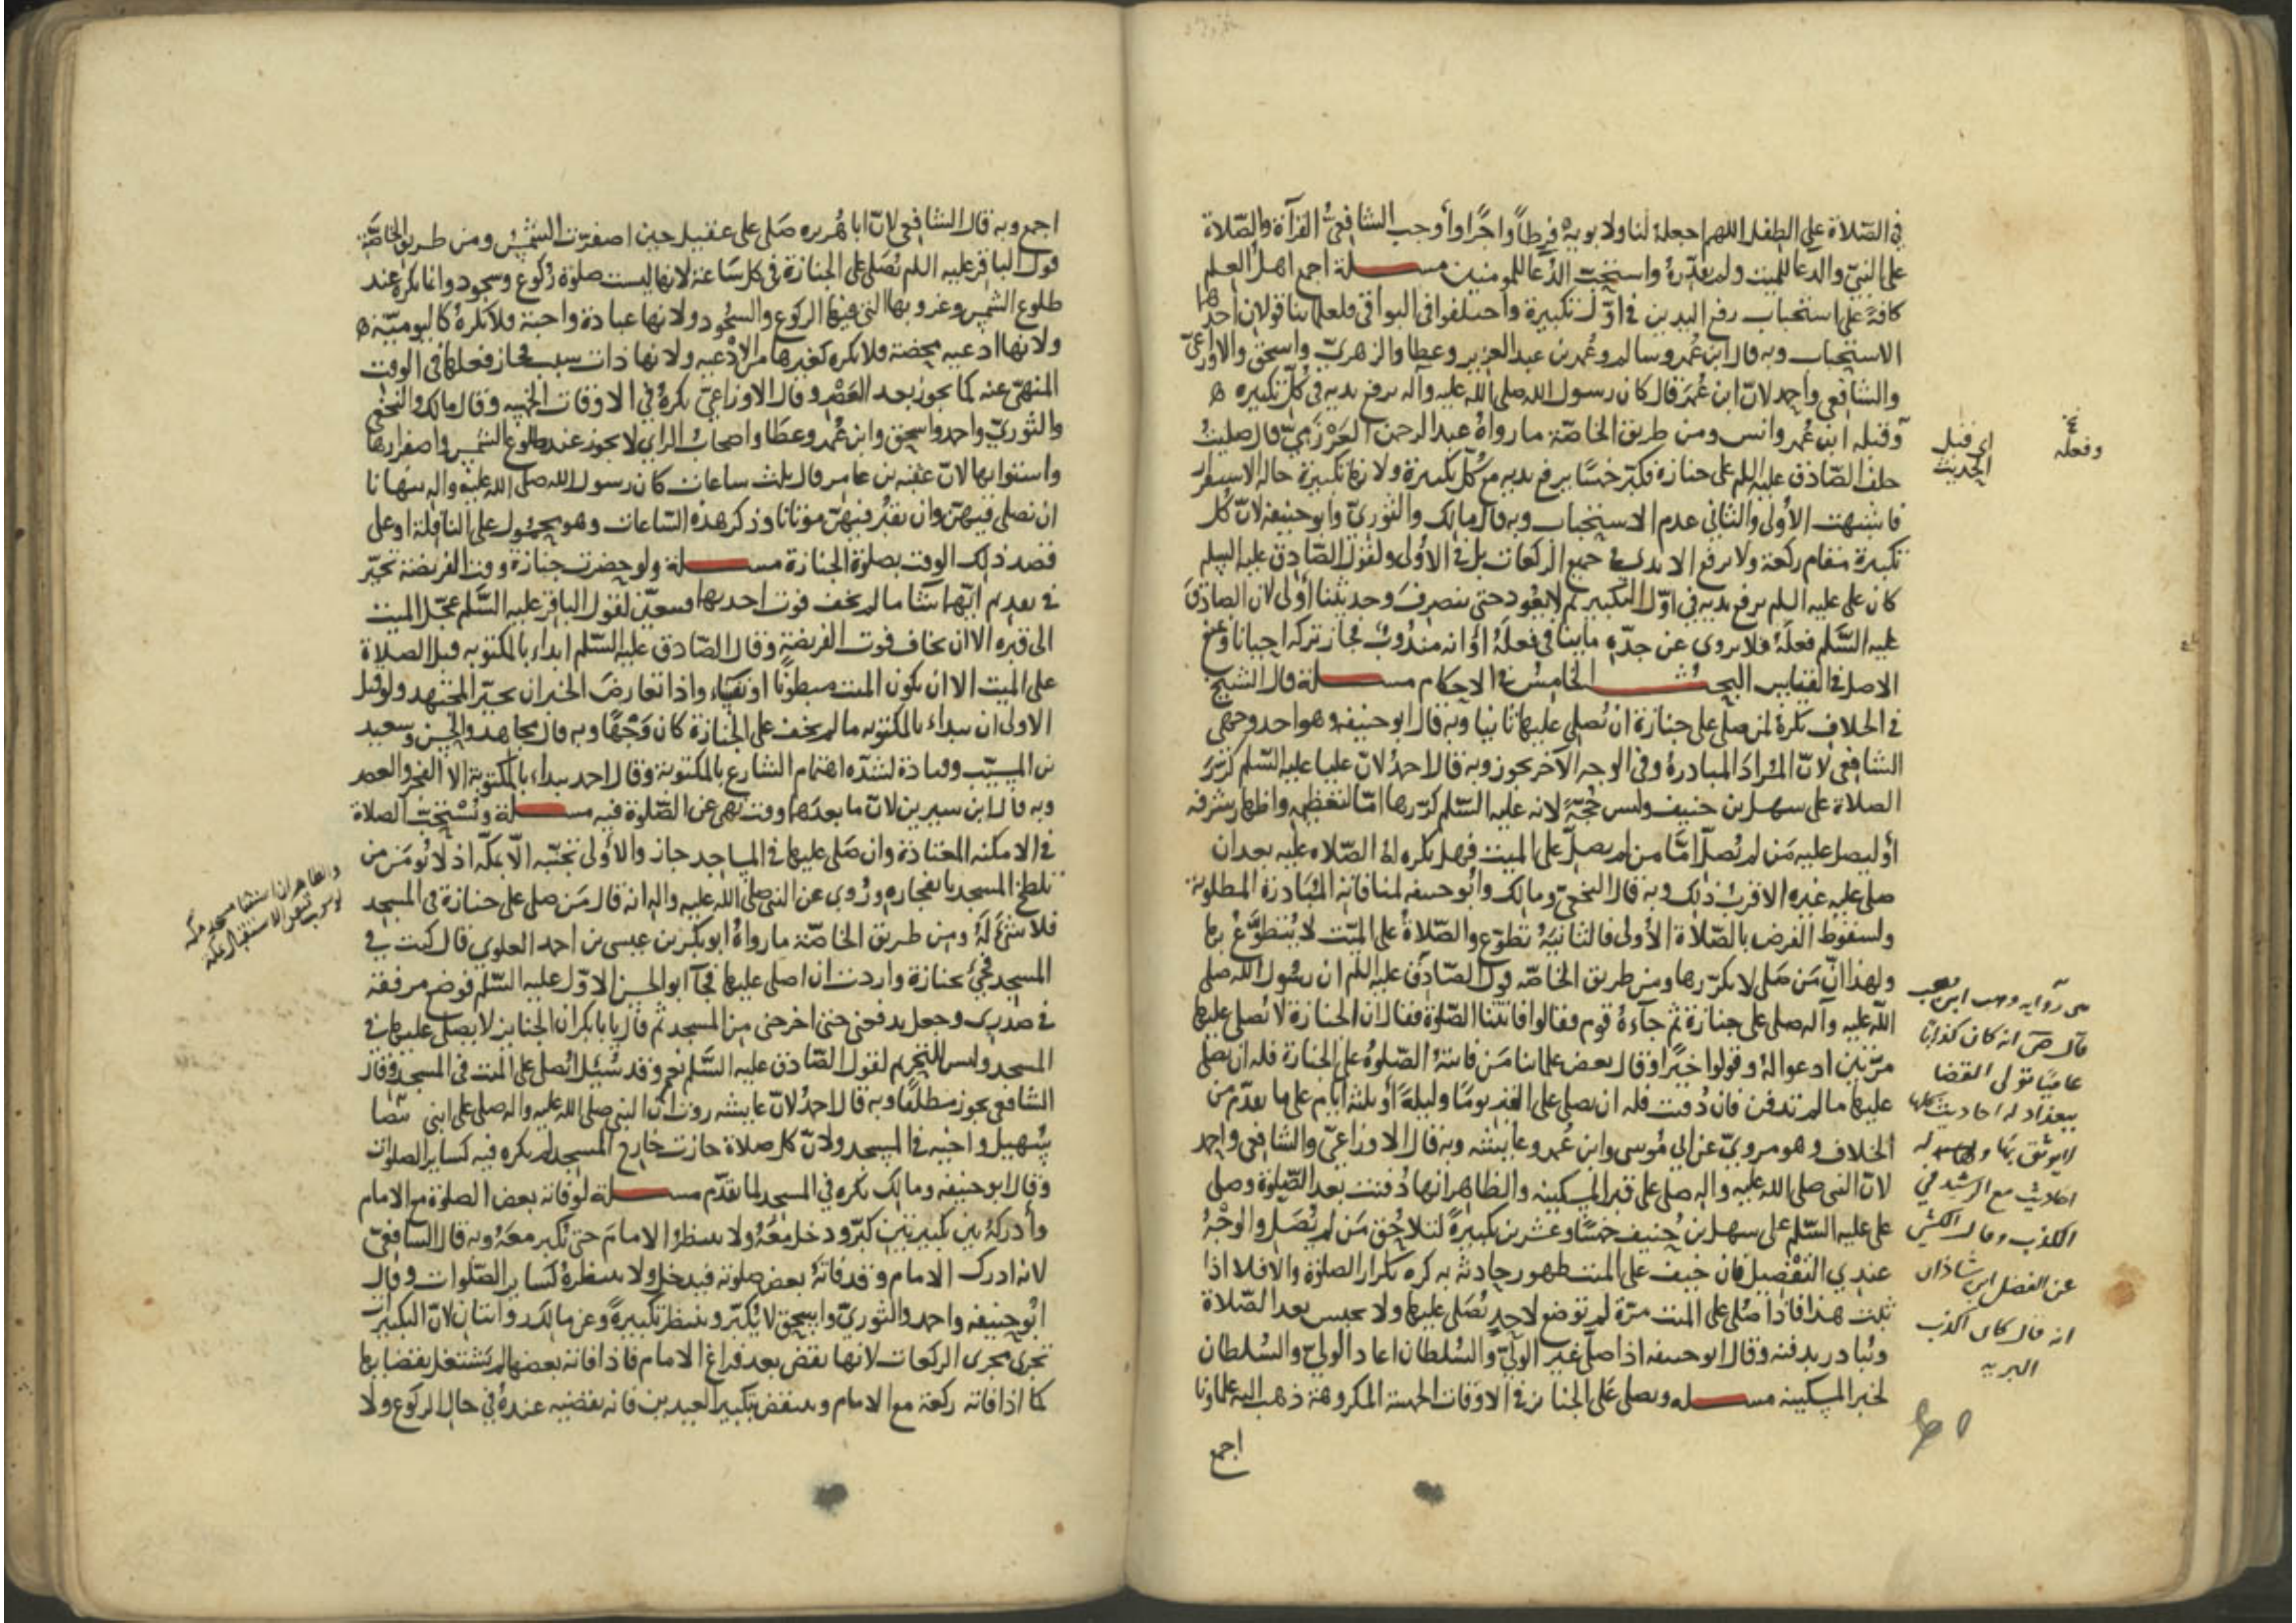 في الصّلاة على الطفل اللهم اجعله لنا ولابويه فرطًا واجرًا واوجب الشافعيُّ القرآة والصّلاة
على النبيّ والدعا للميت ولم يقدّره واستحبّ الدّعا للمومنين مسلة اجمع اهل العلم
كافة على استحباب رفع اليدين في اوّل تكبيرة واختلفوا في البواقي فلعلماينا قولان احدها
الاستحباب وبه قال ابن عُمر وسالم وعُمر بن عبد العزيز وعطا والزهريّ واسحق والاوزاعيّ
والشافعي واحمد لانّ ابن عُمَر قال كان رسول الله صلى الله عليه وآله يرفع يديه في كُلّ تكبيره
وفعله ابن عُمر وانس ومن طريق الخاصّة ما رواهُ عبد الرحمن العَرْزَميّ قال صليتُ
خلف الصّادق عليه السلم على جنازة فكبّر خمسًا يرفع يديه مع كُلّ تكبيرة ولانها تكبيرة حالة الاستقرار
فاشبهت الاولى والثاني عدم الاستحباب وبه قال مالك والثوريّ وابو حنيفه لانّ كل
تكبيرة مقام ركعة ولا ترفع الايدي في جميع الركعات بل في الاُولى ولقول الصّادق عليه السلم
كان على عليه السلم يرفع يديه في اوّل التكبير ثم لا يعُود حتى ينصرفَ وحديثنا اولى لان الصادق
عليه السّلم فعلَهُ فلا يروى عن جدّه ما ينافي فعلَهُ او انه مندُوبٌ فجاز تركه احيانا
الاصل في القنايس البحث الخامس في الاحكام مسلة قال الشيخ
في الخلاف تكرهُ لمن صلى على جنازة ان يُصلى عليها ثانيا وبه قال ابو حنيفه وهو احد وجهي
الشافعي لانّ المُرادَ المبادرةُ وفي الوجه الآخر يجوز وبه قال احمدُ لانّ عليا عليه السّلم كرّرَ
الصلاة على سهل بن حنيف وليس حُجّةً لانه عليه السّلم كرّرها امّا لتعظيمه واظهار شرفه
او ليصل عليه مَن لم يُصلّ امَّا من لم يصلّ على الميت فهل يكره لهُ الصّلاه عليه بعد ان
صلى عليه غيره الاقربُ ذلك وبه قال النخعيّ ومالك وابو حنيفه لمنافاته المُبادرة المطلوبة
ولسقوط الفرض بالصّلاة الاُولى فالثانيةُ تطوّع والصّلاةُ على الميّت لا يُتطوّعُ بها
ولهذا انّ مَن صَلى لا يكرّرها ومن طريق الخاصّه قول الصّادق عليه السلم ان رسُول الله صلى
الله عليه وآله صلى على جنازة ثم جآءهُ قوم فقالوا فاتتنا الصّلوة فقال ان الجنازة لا يُصلى عليها
مرّتين ادعوا لهُ وقولوا خيًرا وقال بعض علماينا مَن فاتتهُ الصّلوةُ على الجنازة فله ان يصلى
عليها ما لم تدفن فان دُفنت فله ان يصلى على القبر يومًا وليلةً او ثلثة ايام على ما تقدّم من
الخلاف وهو مرويّ عن ابي مُوسى وابن عُمر وعايشه وبه قال الاوزاعيّ والشافعي واحمد
لانّ النبي صلى الله عليه واله صلى على قبر المسكينه والظاهر انها دُفنت بعد الصّلوة وصلى
على عليه السّلم على سهل بن حُنيف خمسًا وعشرين تكبيرةً لتلاحُق مَن لم يُصَل والوجهُ
عندي التفصيل فان خيف على الميت ظهور حادثة به كره تكرار الصلوة والا فلا اذا
ثبت هذا فاذا صُلى على الميت مرّة لم توضع لاحدٍ يُصلى عليها ولا يحبس بعد الصّلاة
ويُبادر بدفنه وقال ابو حنيفه اذا صلّى غير الوليّ والسُلطان اعاد الوليّ والسُلطان
لخبر المسكينه مسله ويصلى عَلى الجنائز في الاوقات الخمسة المكروهة ذهب اليه علماونا
اجمع
اي قبل
الحديث
وفعله
رواية وهب ابن
قال انه كان كذابًا
عاميًا تولى القضا
ببغداد له احاديث كلها
لايوثق بها وله
احاديث مع الرشيد في
الكذب وقال الكشي
عن الفضل ابن شاذان
انه قال كان اكذب
البريه
اجمع وبه قال الشافعي لانّ ابا هُريره صَلى على عقيل حين اصفرّت الشمس ومن طريق الخاصّة
قول الباقر عليه السلم تُصَلى على الجنازة في كل سَاعة لانها ليست صلوة رُكوع وسجود وانما تكره عند
طلوع الشمس وغروبها التي فيها الركوع والسجُود ولانها عبادة واجبة فلا تكرهُ كاليوميّة
ولانها ادعيه محضة فلا تكره كغيرها من الادعيه ولانها ذات سبب فجاز فعلها في الوقت
المنهيّ عنه كما يجوز بعد العَصْر وقال الاوزاعيّ تكرهُ في الاوقات الخمسه وقال مالك والنخعي
والثوريّ واحمد واسحق وابن عُمر وعطا واصحابُ الراي لا يجوز عند طلوع الشمس واصفرارها
واستوايها لانّ عقبه بن عامر قال ثلث ساعات كان رسول الله صلى الله عليه واله ينهانا
ان نصلى فيهنّ وان نقبُر فيهنّ موتانا وذكر هذه السّاعات وهو محمُول على النافلة او على
قصد ذلك الوقت بصلوة الجنازة مسلة ولو حضرت جنازة وقت الفريضة تخيّر
في تقديم ايّهما شآ ما لم يخف فوت احديهما فيتعيّن لقول الباقر عليه السَّلم عجّل الميت
الى قبره الا ان يخاف فوت الفريضة وقال الصّادق عليه السّلم ابداء بالمكتوبه قبل الصلاة
على الميت الا ان يكون الميت مبطونًا او نفسَاء واذا تعارض الخبران تخيّر المجتهد ولو قيل
الاولى ان يبداء بالمكتوبه ما لم يخف على الجنازة كان وَجْهًا وبه قال مجاهد والحسن وسعيد
بن المسيّب وقتادة لشدّه اهتمام الشارع بالمكتوبة وقال احمد يبداء بالمكتوبة الا الفجر والعصر
وبه قال ابن سيرين لانّ ما بعدهما وقت نهى عن الصّلوة فيه مسلة وتُسْتحبّ الصلاة
في الامكنه المعتادة وان صَلى عليها في المساجد جاز والاولى تجنّبه الّا بمكّه اذ لا يُومَن من
تلطخ المسجد بانفجاره ورُوي عن النبي صلى الله عليه واله انه قال مَن صلى على جنازة في المسجد
فلا شَئَ لهُ ومن طريق الخاصّة ما رواهُ ابو بكر بن عيسى بن احمد العلوي قال كنت في
المسجد فجئ بجنازة واردت ان اصلى عليها فجآ ابو الحسن الاوّل عليه السّلم فوضع مرفقة
في صدري وجعل يدفعني حتى اخرجني من المسجد ثم قال يا بابكر ان الجنايز لا يصلى عليها في
المسجد وليس للتحريم لقول الصّادق عليه السَّلم نعم وقد سُئِل ايُصلى على الميت في المسجد وقال
الشافعي يجوز مطلقًا وبه قال احمدُ لانّ عايشه روت ان النبي صلى الله عليه واله صلى على ابني بيضا
سُهيل واخيه في المسجد ولانّ كل صلاة جازت خارج المسجد لم تكره فيه كساير الصلوات
وقال ابو حنيفه ومالك تكره في المسجد لما تقدّم مسلة لو فاته بعض الصلوة مع الامام
وأدركهُ بين تكبيرتين كبّر ودخل معَهُ ولا ينتظرُ الامامَ حتى يُكبر معَهُ وبه قال الشافعيّ
لانه ادرك الامام وقد فاتهُ بعض صلوته فيدخل ولا ينتظرهُ كساير الصّلوات وقال
ابُو حنيفه واحمد والثوريّ واسحق لا يُكبّر وينتظر تكبيرةً وعن مالك روايتان لانّ التكبيرات
تجرى مجرى الركعات لانها تقضى بعد فراغ الامام فاذا فاته بعضها لم يشتغل بقضايها
كما اذا فاته ركعة مع الامام وينتقض بتكبير العيدين فانه يقضيه عندهُ في حال الركوع ولا
والظاهر ان استثنا مسجد مكه